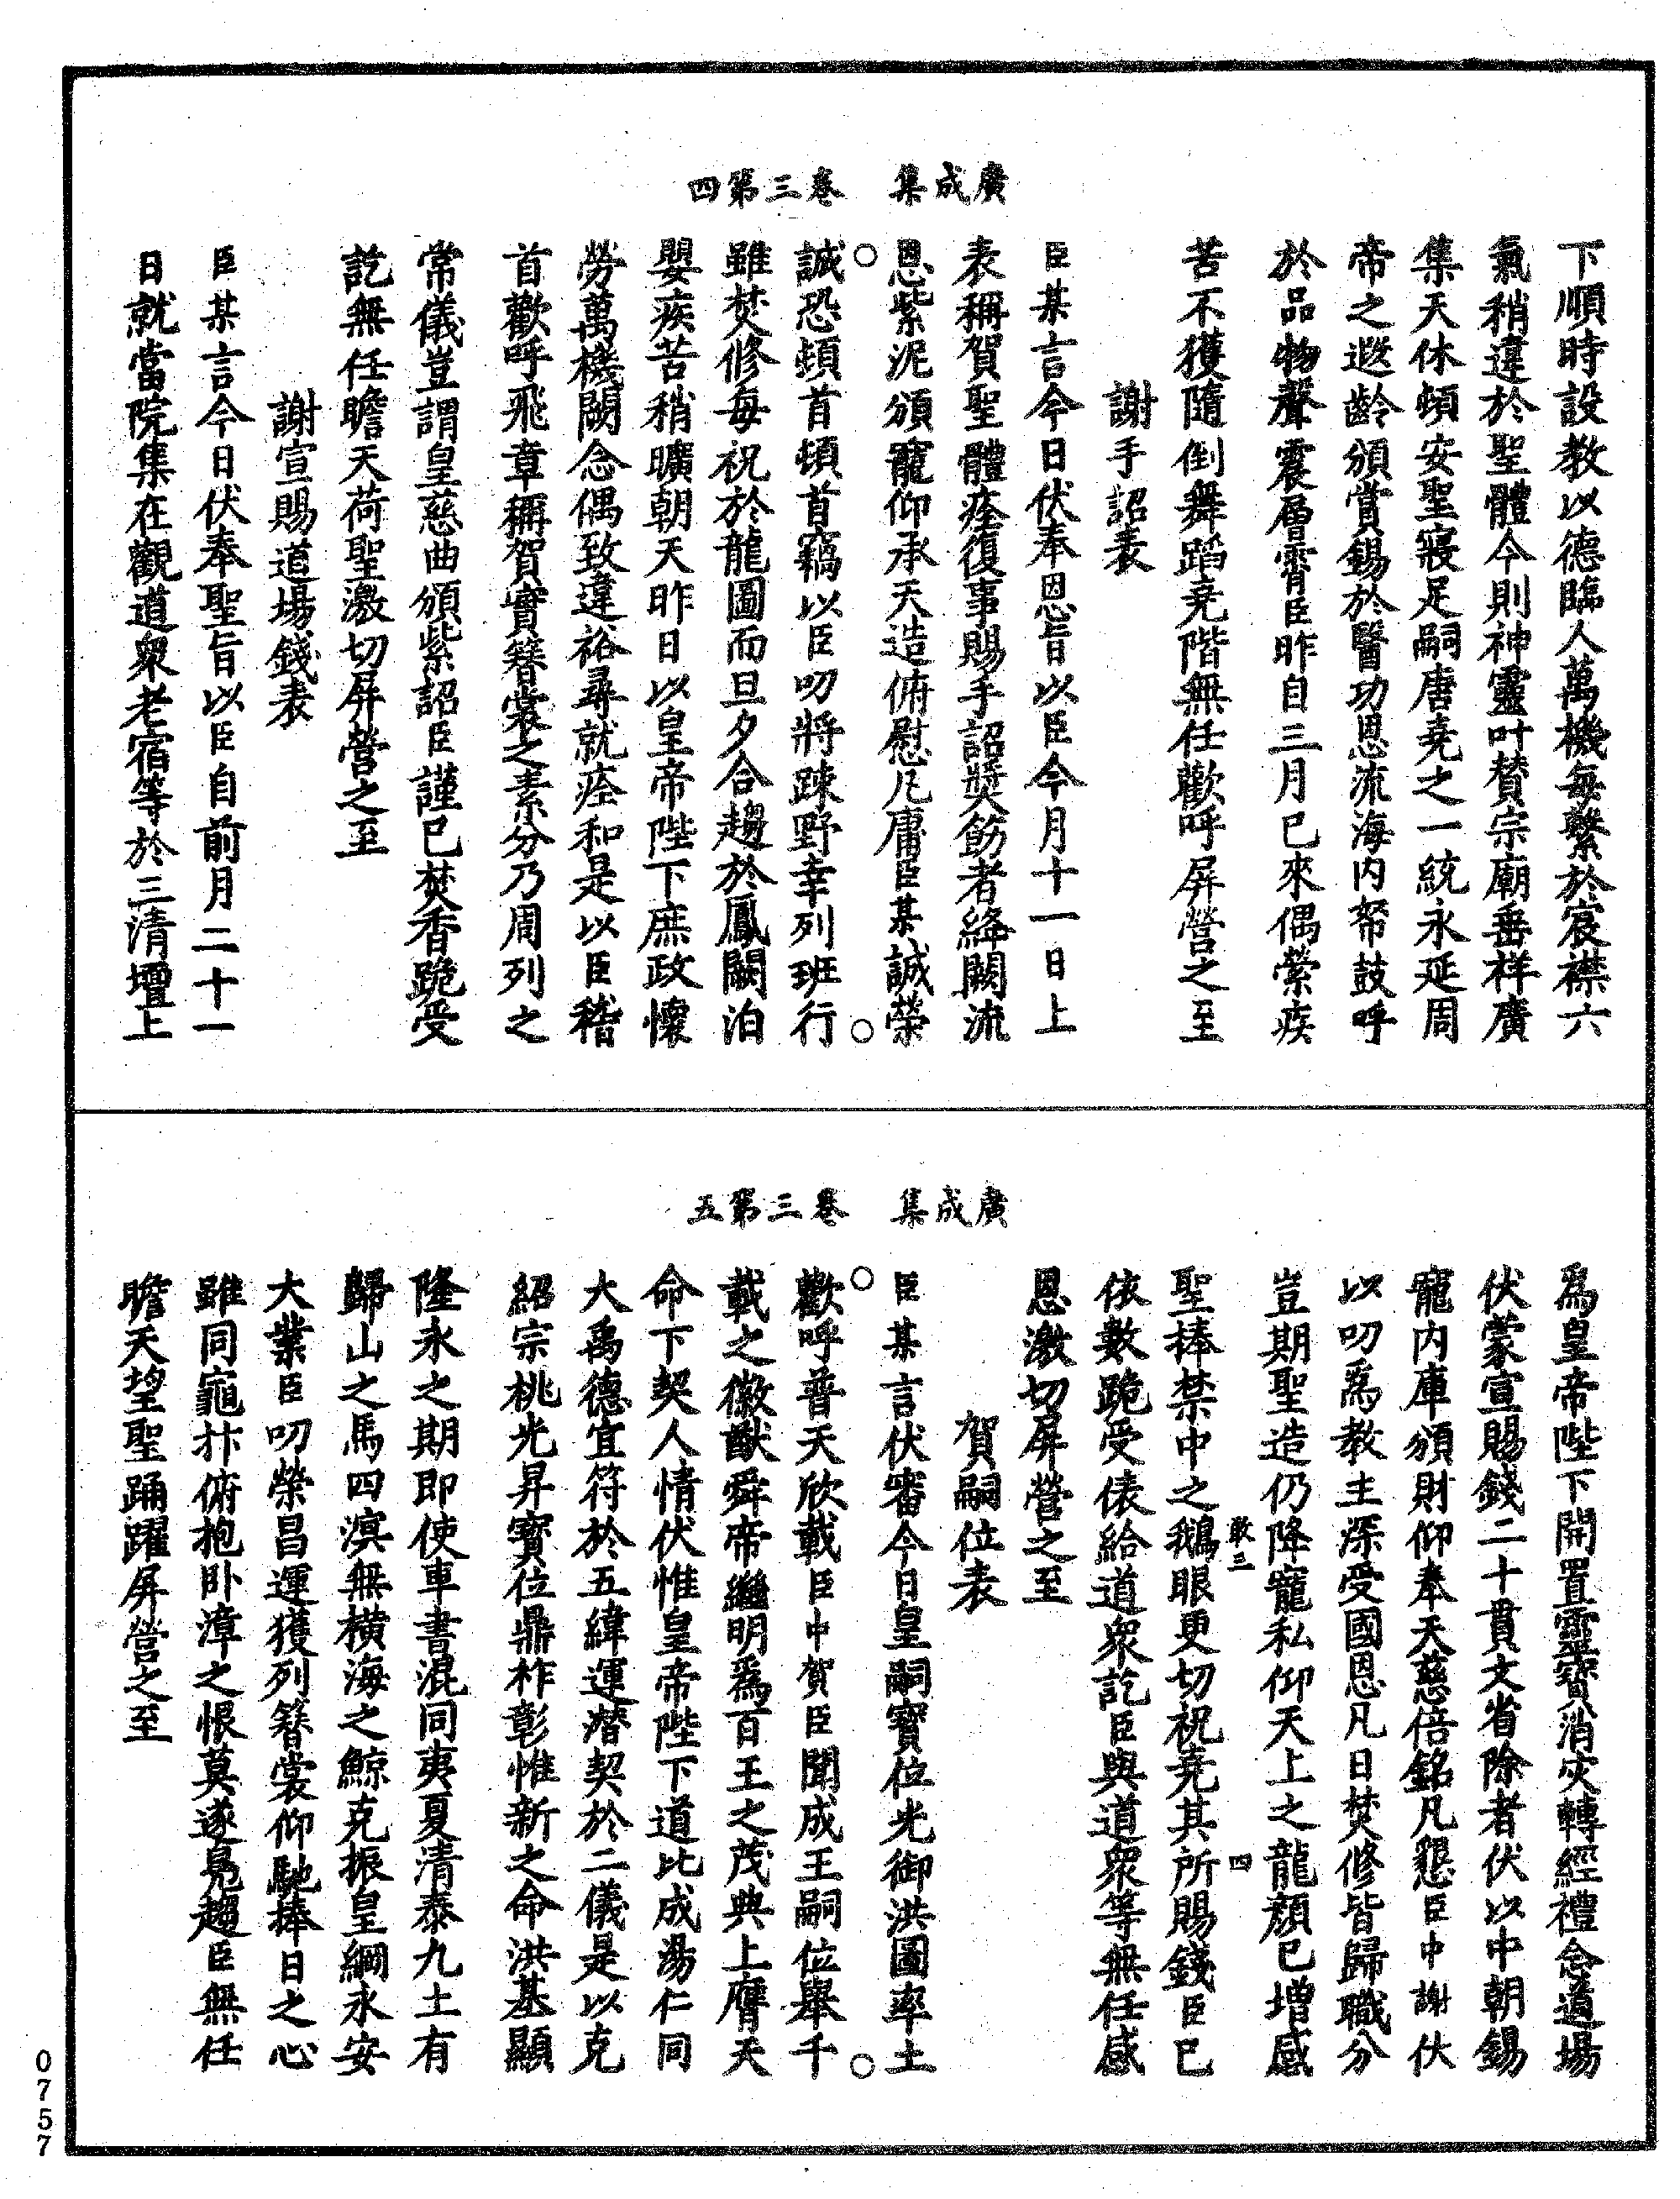 廣成集　卷三第四
下順時設教以德臨人萬機每繫於宸襟六
氣稍違於聖體今則神靈叶贊宗廟垂祥廣
集天休頓安聖寢足嗣唐堯之一統永延周
帝之遐齡頒賞錫於醫功恩流海內帑鼓呼
於品物聲震層霄臣昨自三月已來偶縈疾
苦不獲隨倒舞蹈堯階無任歡呼屏營之至
謝手詔表
臣某言今日伏奉恩旨以臣今月十一日上
表稱賀聖體痊復事賜手詔獎飭者絳闕流
恩紫泥頒寵仰承天造俯慰凡庸臣某誠榮
誠恐頓首頓首竊以臣叨將踈野幸列班行
雖焚修每祝於龍圖而旦夕合趨於鳳闕洎
嬰疾苦稍曠朝天昨日以皇帝陛下庶政懷
勞萬機闕念偶致違裕尋就痊和是以臣稽
首歡呼飛章稱賀實簪裳之素分乃周列之
常儀豈謂皇慈曲頒紫詔臣謹已焚香跪受
訖無任瞻天荷聖激切屏營之至
謝宣賜道場錢表
臣某言今日伏奉聖旨以臣自前月二十一
日就當院集在觀道衆老宿等於三清壇上
廣成集　卷三第五
爲皇帝陛下開置靈寶消灾轉經禮念道場
伏蒙宣賜錢二十貫文省除者伏以中朝錫
寵內庫頒財仰奉天慈倍銘凡懇臣中謝伏
以叨爲教主深受國恩凡日焚修皆歸職分
豈期聖造仍降寵私仰天上之龍顏已增感
敢三　四
聖捧禁中之鵝眼更切祝堯其所賜錢臣已
依數跪受俵給道衆訖臣與道衆等無任感
恩激切屏營之至
賀嗣位表
臣某言伏審今日皇嗣寶位光御洪圖率土
歡呼普天欣載臣中賀臣聞成王嗣位舉千
載之徽猷舜帝繼明爲百王之茂典上膺天
命下契人情伏惟皇帝陛下道比成湯仁同
大禹德宜符於五緯運潛契於二儀是以克
紹宗桃光昇寶位鼎祚彰惟新之命洪基顯
隆永之期即使車書混同夷夏清泰九土有
歸山之馬四溟無橫海之鯨克振皇綱永安
大業臣叨榮昌運獲列簪裳仰馳捧日之心
雖同龜抃俯抱卧漳之恨莫遂鳧趨臣無任
瞻天望聖踊躍屏營之至
0757